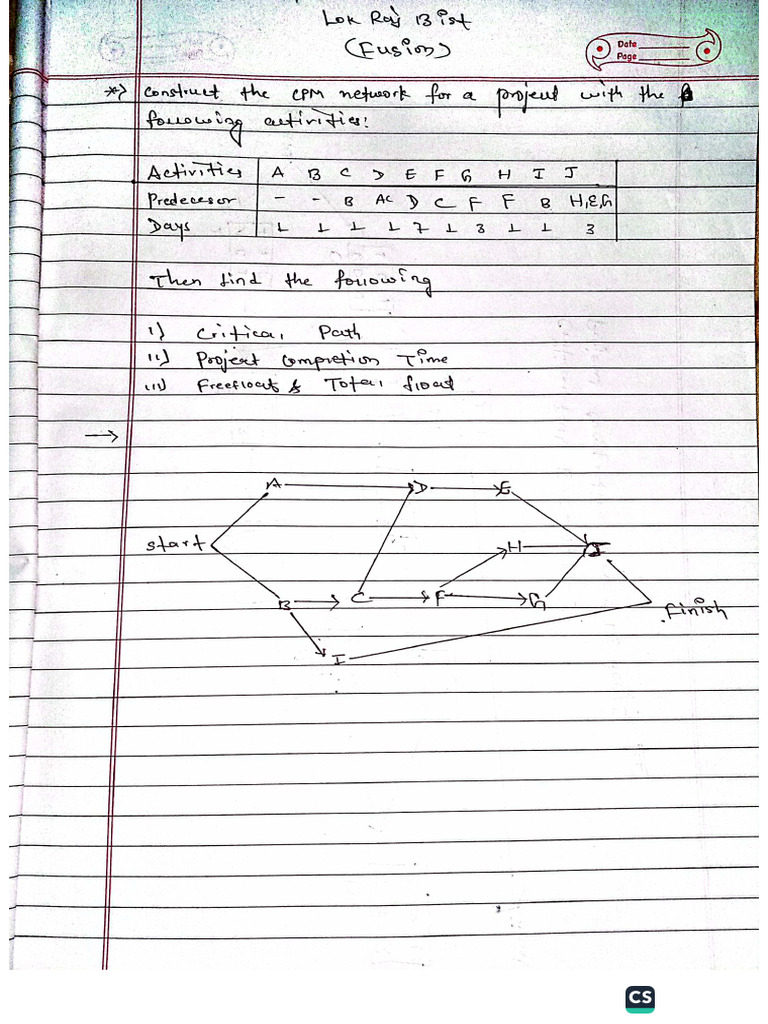 Lok Raj Bist
(Fusion)
Date
Page
*) construct the CPM network for a project with the
following activities:
Activities A B C D E F G H I J
Predecesor - - B AC D C F F B H,E,G
Days 1 1 1 1 7 1 3 1 1 3
Then find the following
i) Critical Path
ii) Project Completion Time
iii) Freefloat & Total float
A D E
start H J
B C F G finish
I
CS